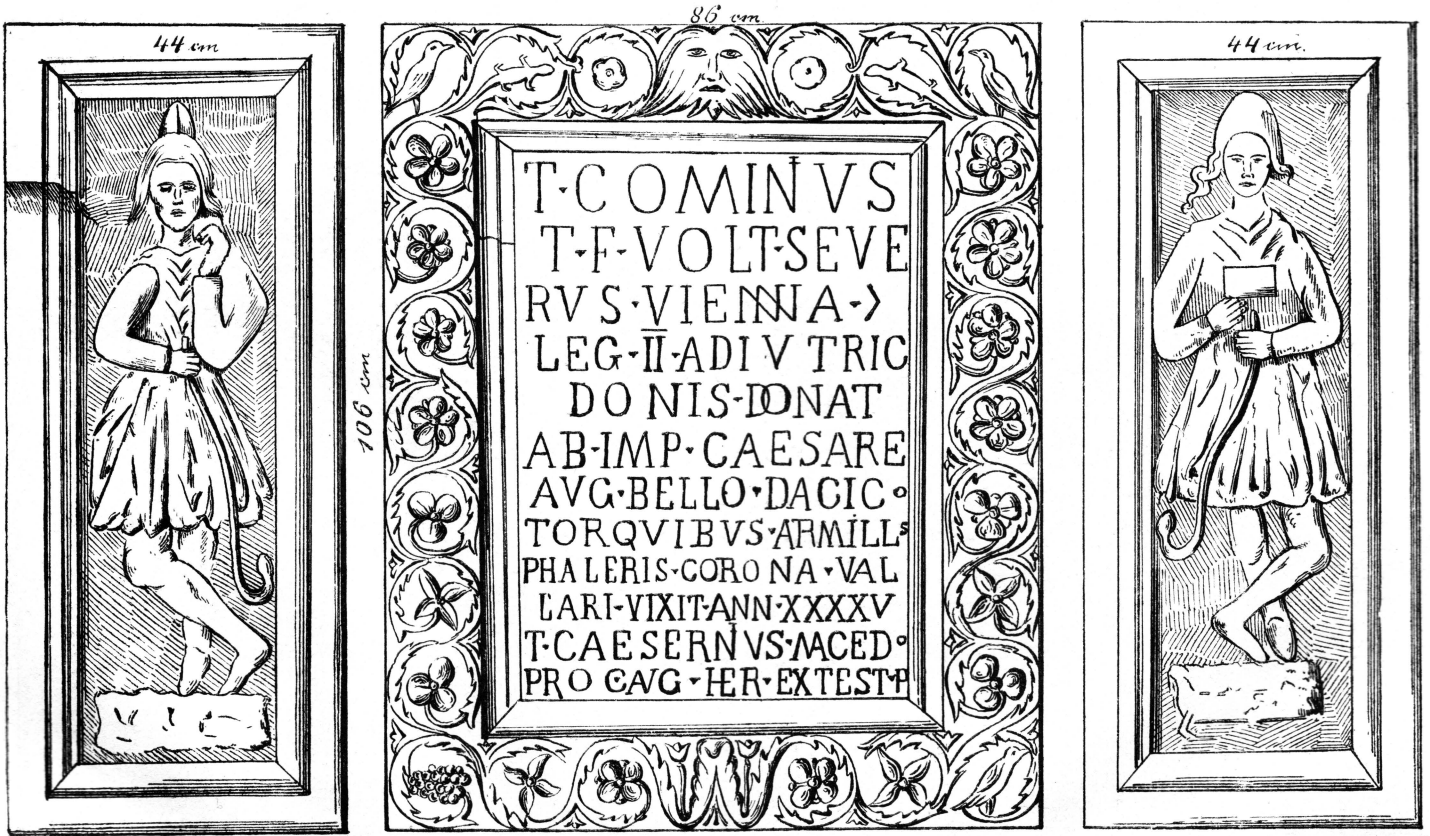 44 cm
86 cm
44 cm.
106 cm
T·COMINVS
T·F·VOLT·SEVE
RVS·VIENNA·>
LEG·II·ADIVTRIC
DONIS·DONAT
AB·IMP·CAESARE
AVG·BELLO·DACICO
TORQVIBVS·ARMILLS
PHALERIS·CORONA·VAL
LARI·VIXIT·ANN·XXXXV
T·CAESERNVS·MACEDO
PROC AVG·HER·EX TEST·P